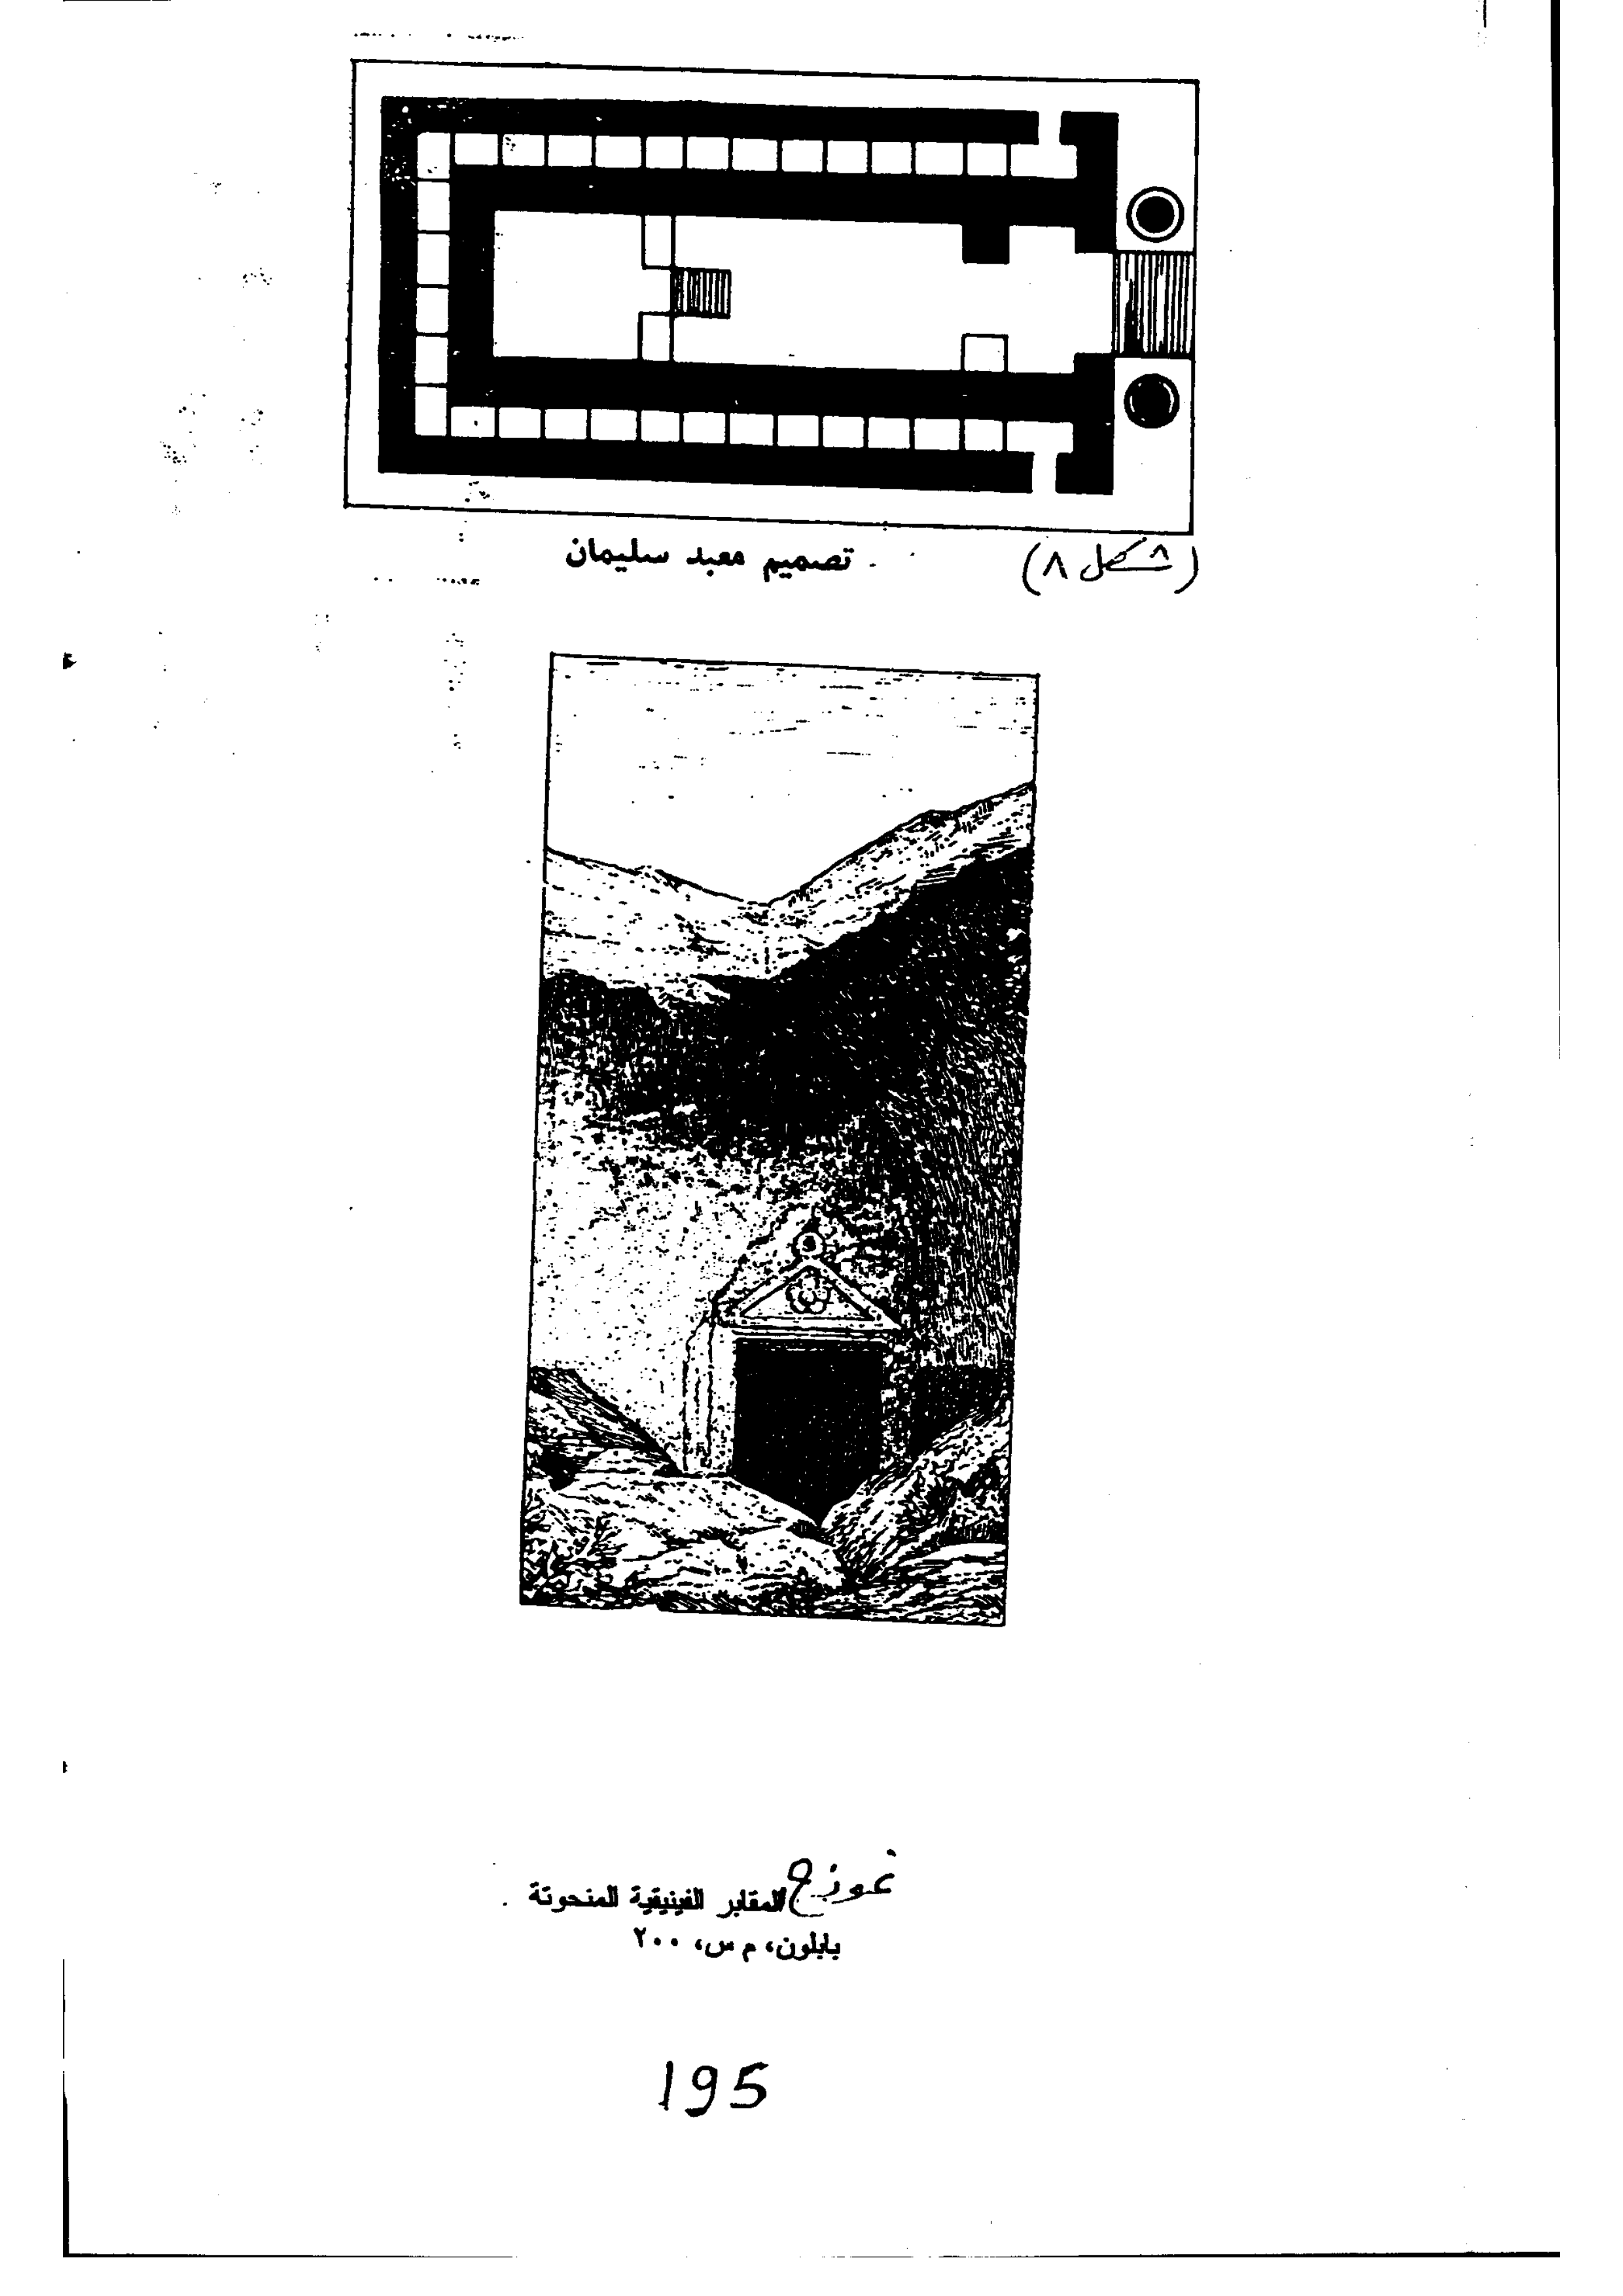 (شكل ٨) تصميم معبد سليمان .
نموذج المقابر الفينيقية المنحوتة .
بابلون، م س، ٢٠٠
195